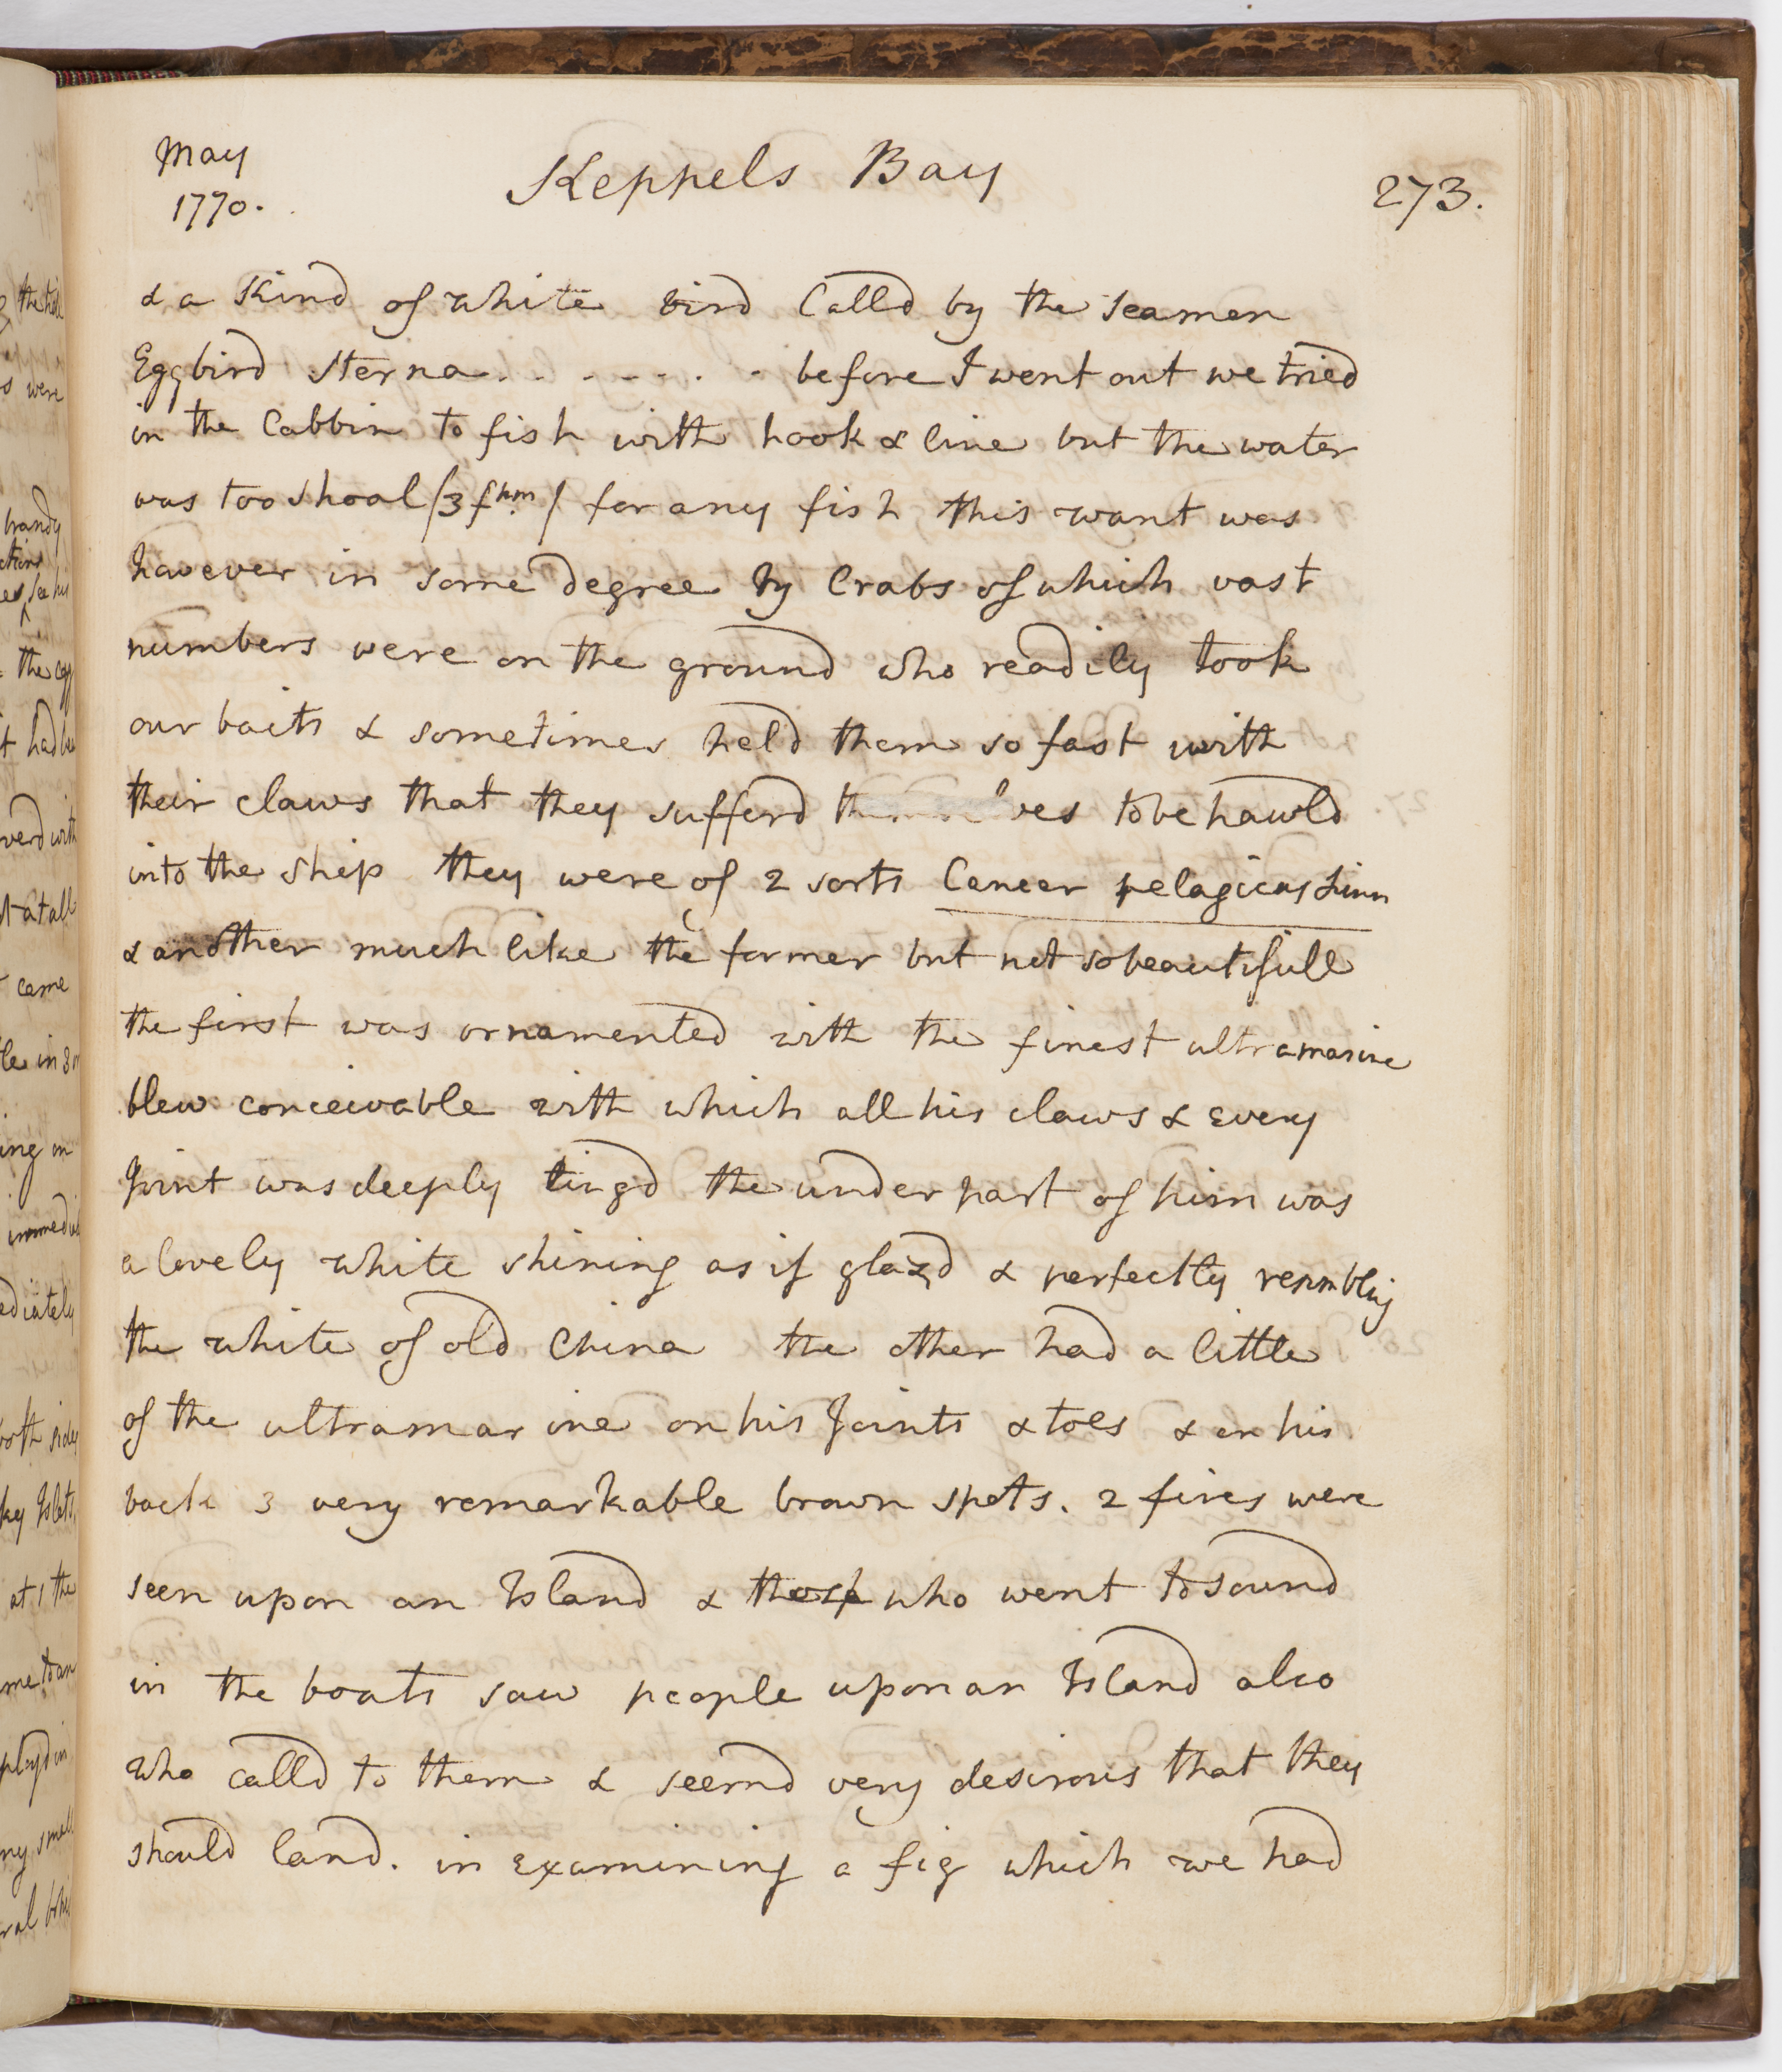 May
1770.
Keppels Bay
273.
& a Kind of white bird Calld by the Seamen
Eggbird Sterna . . . . . . . . before I went out we tried
in the Cabbin to fish with hook & line but the water
was too shoal /3 fhm./ for any fish this want was
however in some degree by Crabs of which vast
numbers were on the ground who readily took
our baits & sometimes held them so fast with
their claws that they sufferd themselves to be hawld
into the ship they were of 2 sorts Cancer pelagicus Linn
& another much like the former but not so beautifull
the first was ornamented with the finest ultramarine
blew conceivable with which all his claws & every
Joint was deeply tingd the under part of him was
a lovely white shining as if glazd & perfectly resembling
the white of old China the other had a little
of the ultramarine on his Joints & toes & on his
back 3 very remarkable brown spots. 2 fires were
seen upon an Island & those who went to sound
in the boats saw people upon an Island also
who calld to them & seemd very desirous that they
should land. in examining a fig which we had